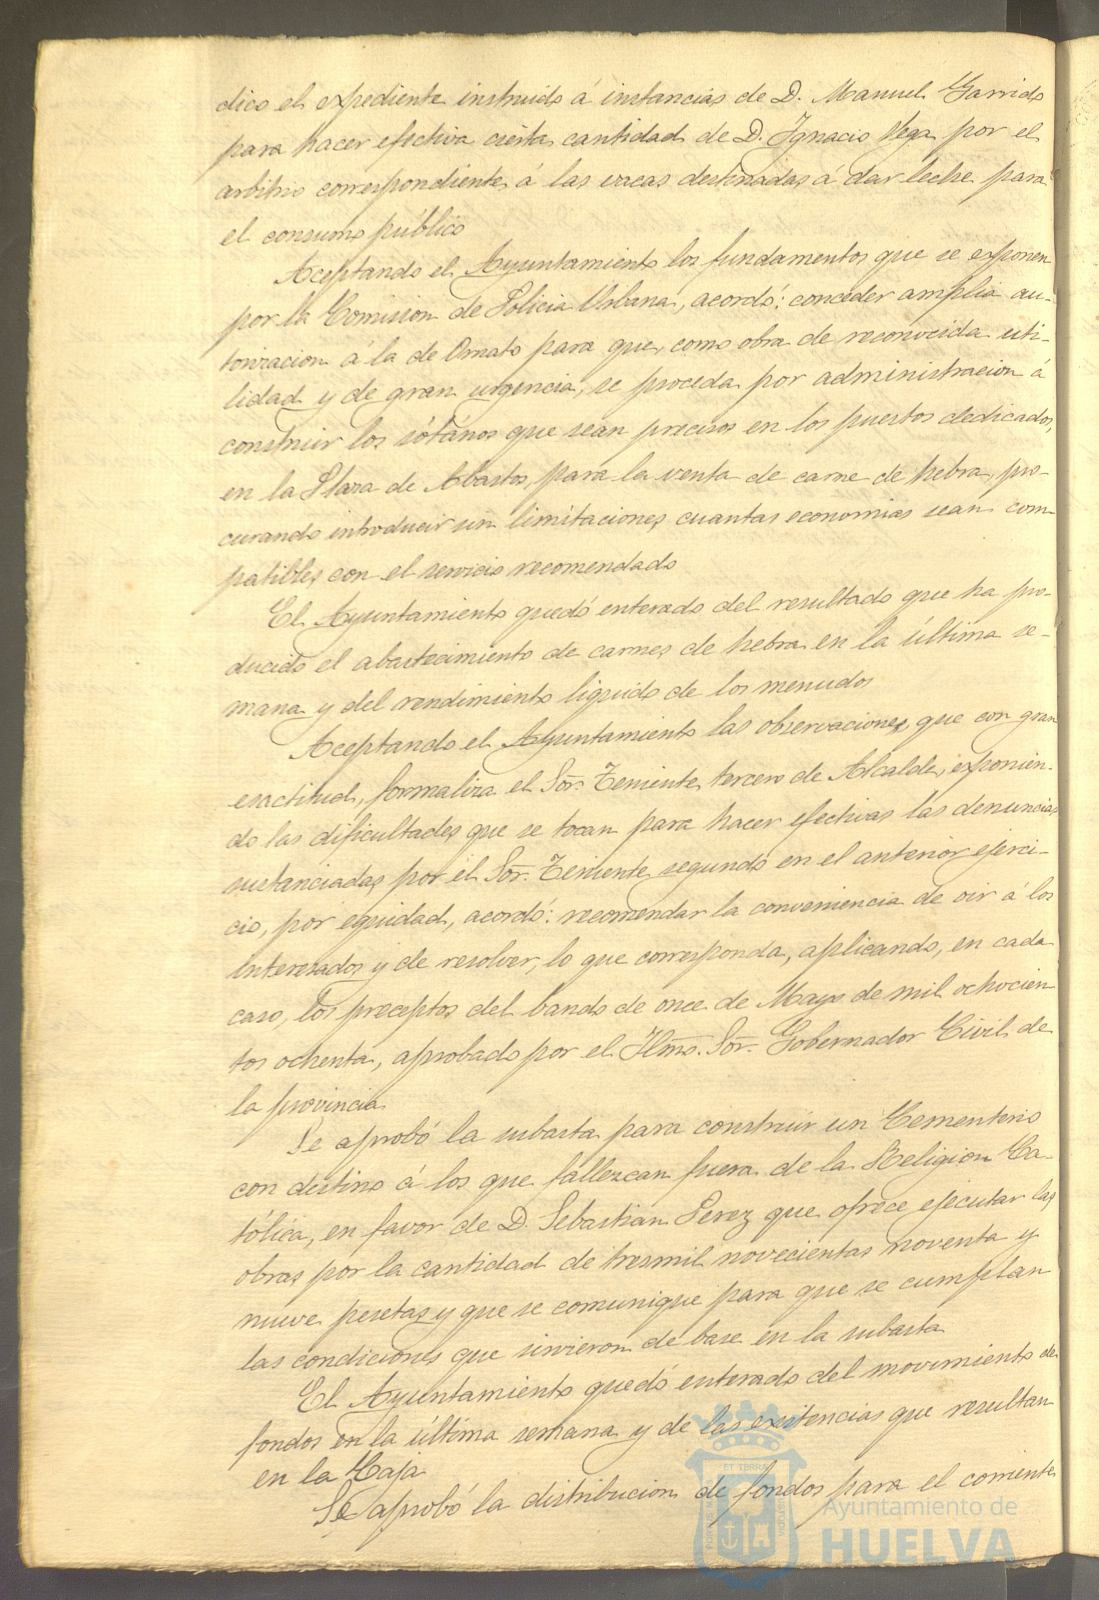 dico el expediente instruido á instancias de D. Manuel Garrido
para hacer efectiva cierta cantidad de D. Ignacio Vega por el
arbitrio correspondiente á las vacas destinadas á dar leche para
el consumo público
Aceptando el Ayuntamiento los fundamentos que se exponen
por la Comision de Policia Urbana, acordó: conceder amplia au-
torizacion á la de Ornato para que, como obra de reconocida uti-
lidad y de gran urgencia, se proceda por administracion á
construir los sótános que sean precisos en los puestos dedicados,
en la Plaza de Abastos, para la venta de carne de hebra, pro-
curando introducir sin limitaciones cuantas economias sean com-
patibles con el servicio recomendado
El Ayuntamiento quedó enterado del resultado que ha pro-
ducido el abastecimiento de carnes de hebra en la última se-
mana y del rendimiento liquido de los menudos
Aceptando el Ayuntamiento las observaciones que con gran
exactitud, formaliza el Sor. Teniente tercero de Alcalde, exponien-
do las dificultades que se tocan para hacer efectivas las denuncias
sustanciadas por el Sor. Teniente segundo en el anterior ejerci-
cio, por equidad, acordó: recomendar la conveniencia de oir á los
interesados y de resolver, lo que corresponda, aplicando, en cada
caso, los preceptos del bando de once de Mayo de mil ochocien
tos ochenta, aprobado por el Ilmo. Sor. Gobernador Civil de
la provincia
Se aprobó la subasta para construir un Cementerio
con destino á los que fallezcan fuera de la Religion Ca-
tólica, en favor de D. Sebastian Perez que ofrece ejecutar las
obras por la cantidad de tresmil novecientas noventa y
nueve pesetas y que se comunique para que se cumplan
las condiciones que sirvieron de base en la subasta
El Ayuntamiento quedó enterado del movimiento de
fondos en la última semana y de las existencias que resultan
en la Caja
Se aprobó la distribucion de fondos para el corriente
Ayuntamiento de
HUELVA